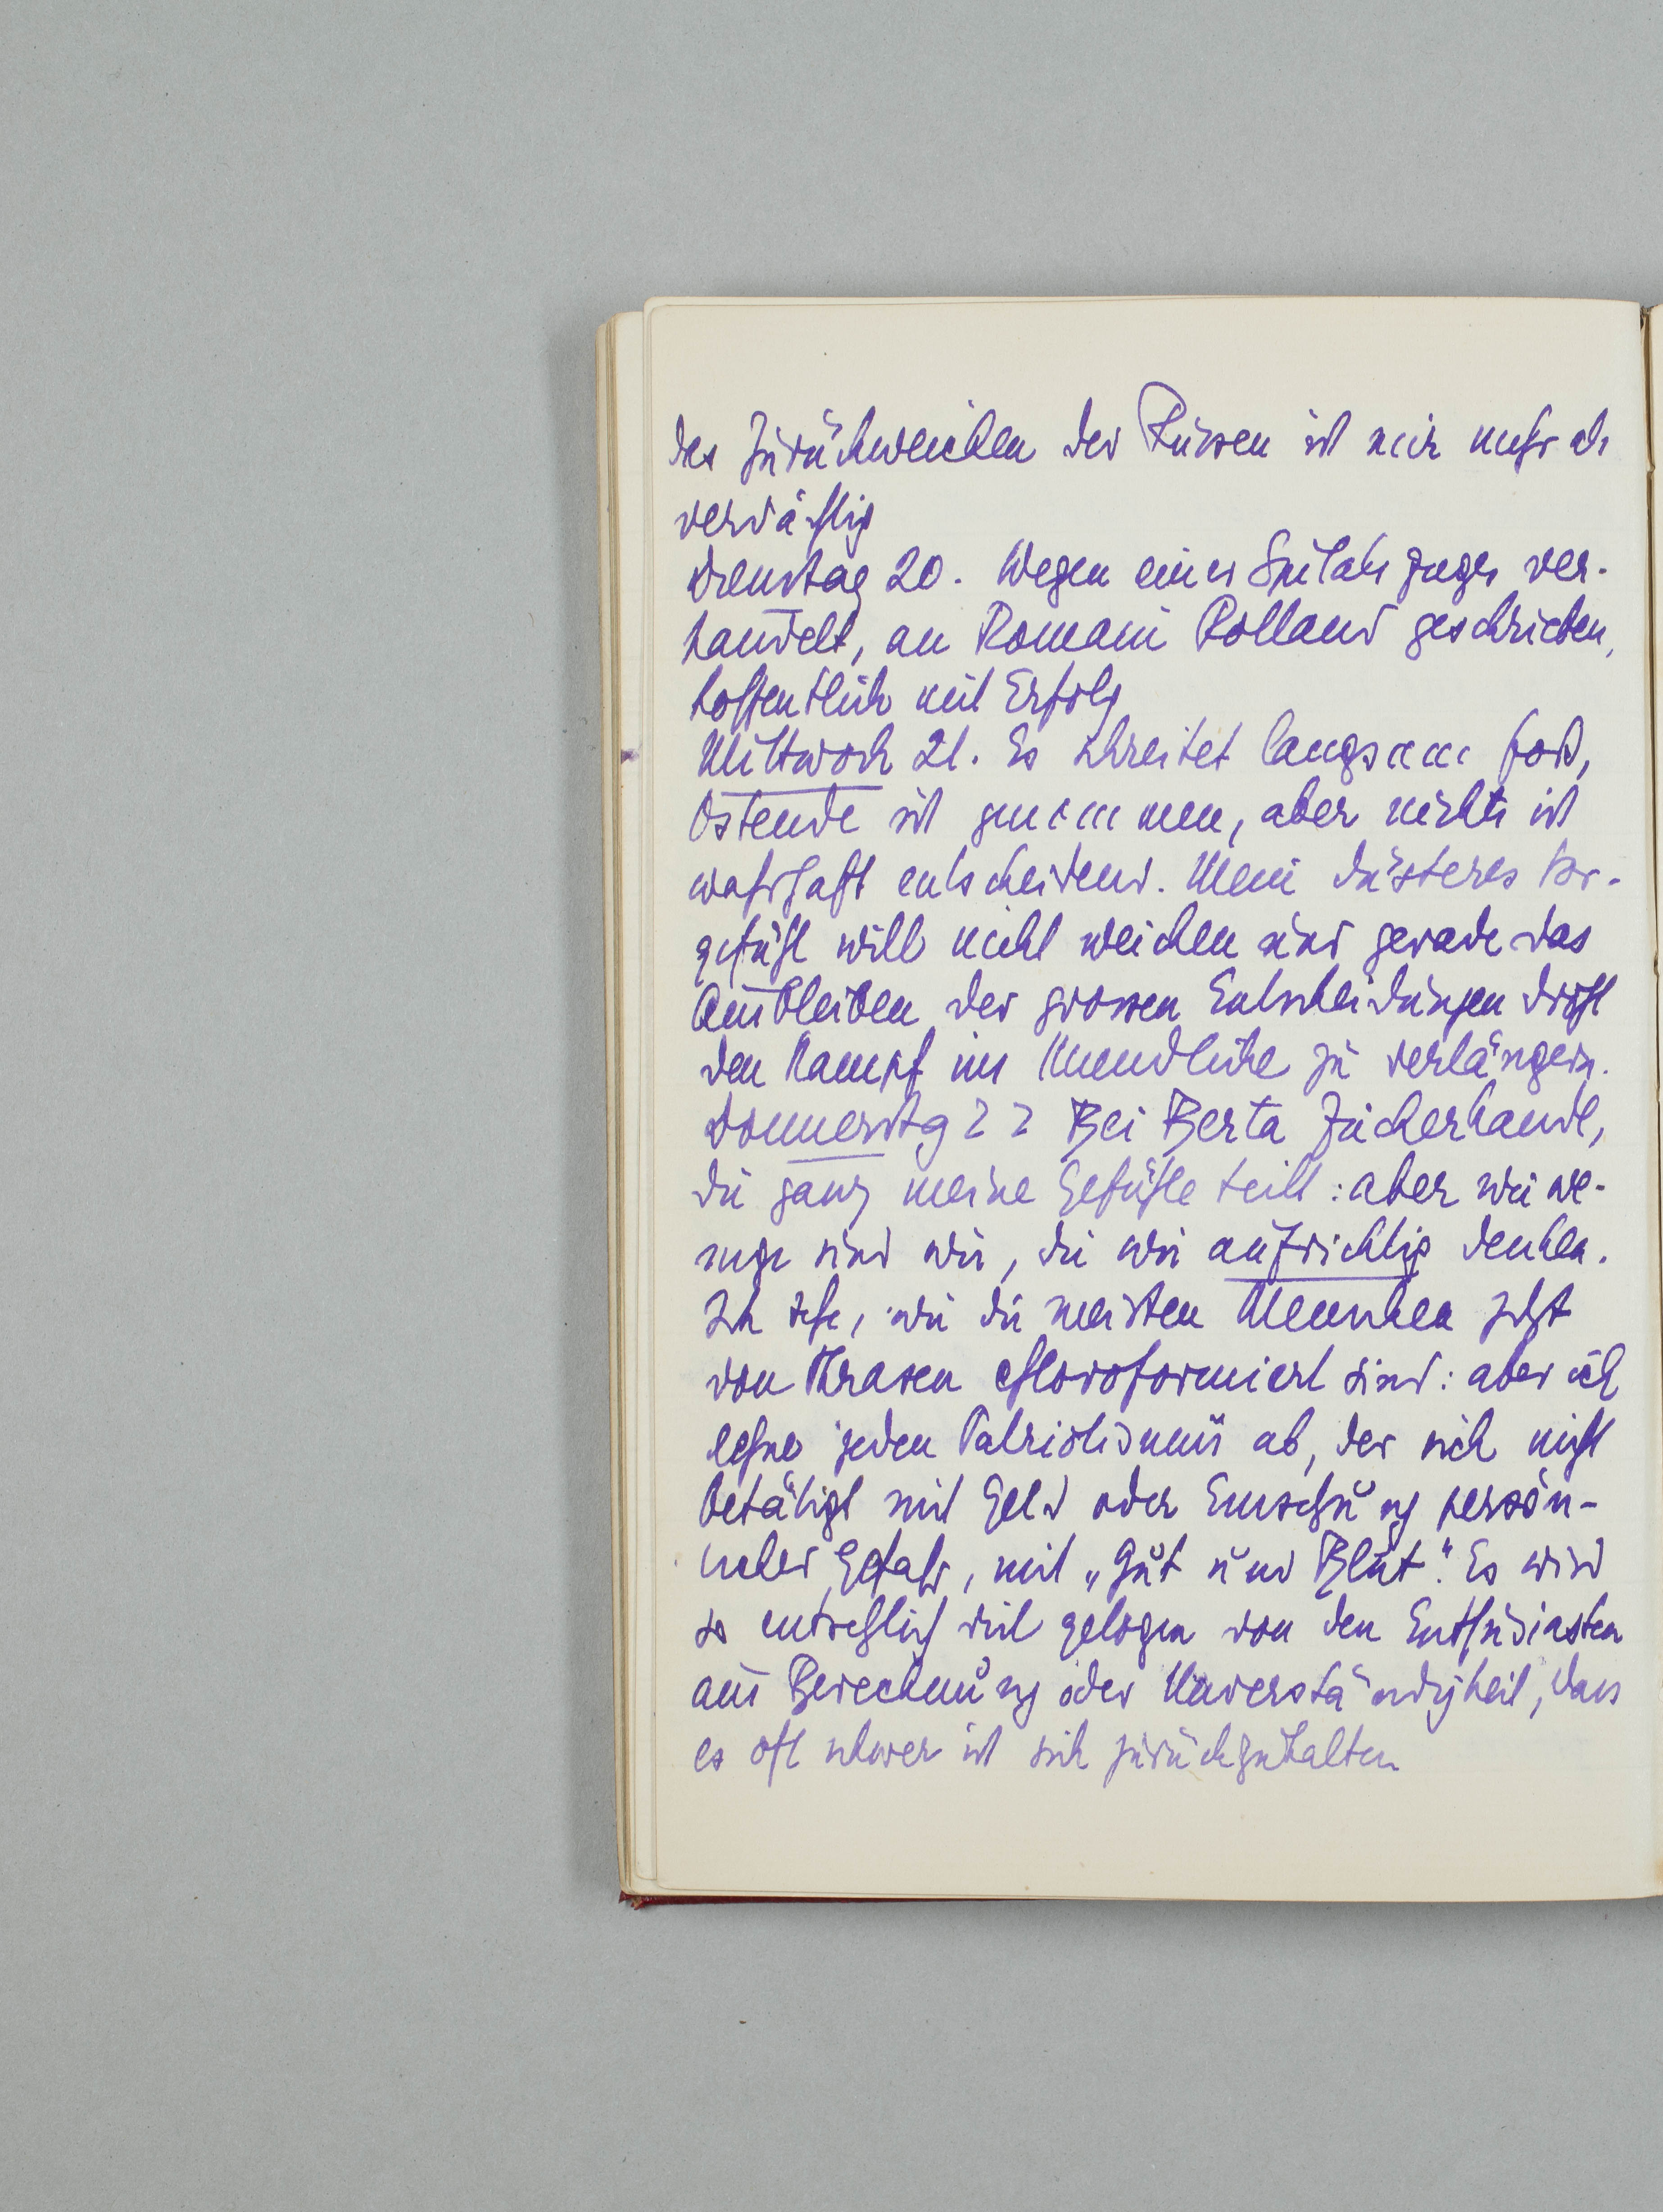 das Zurückweichen der Russen ist mir mehr als
verdächtig
Dienstag 20. Wegen eines Spitalszuges ver-
handelt, an Romain Rolland geschrieben,
hoffentlich mit Erfolg
Mittwoch 21. Es schreitet langsam fort,
Ostende ist genommen, aber nichts ist
wahrhaft entscheidend. Mein düsteres Vor-
gefühl will nicht weichen und gerade das
Ausbleiben der grossen Entscheidungen droht
den Kampf ins Unendliche zu verlängern.
Donnerstag 22 Bei Berta Zuckerkandl,
die ganz meine Gefühle teilt: aber wie we-
nige sind wir, die wir aufrichtig denken.
Ich sehe, wie die meisten Menschen jetzt
von Phrasen chloroformiert sind: aber ich
lehne jeden Patriotismus ab, der sich nicht
betätigt mit Geld oder Einsetzung persön-
licher Gefahr, mit „Gut und Blut". Es wird
so entsetzlich viel gelogen von den Enthusiasten
aus Berechnung oder Unverständigkeit, dass
es oft schwer ist sich zurückzuhalten